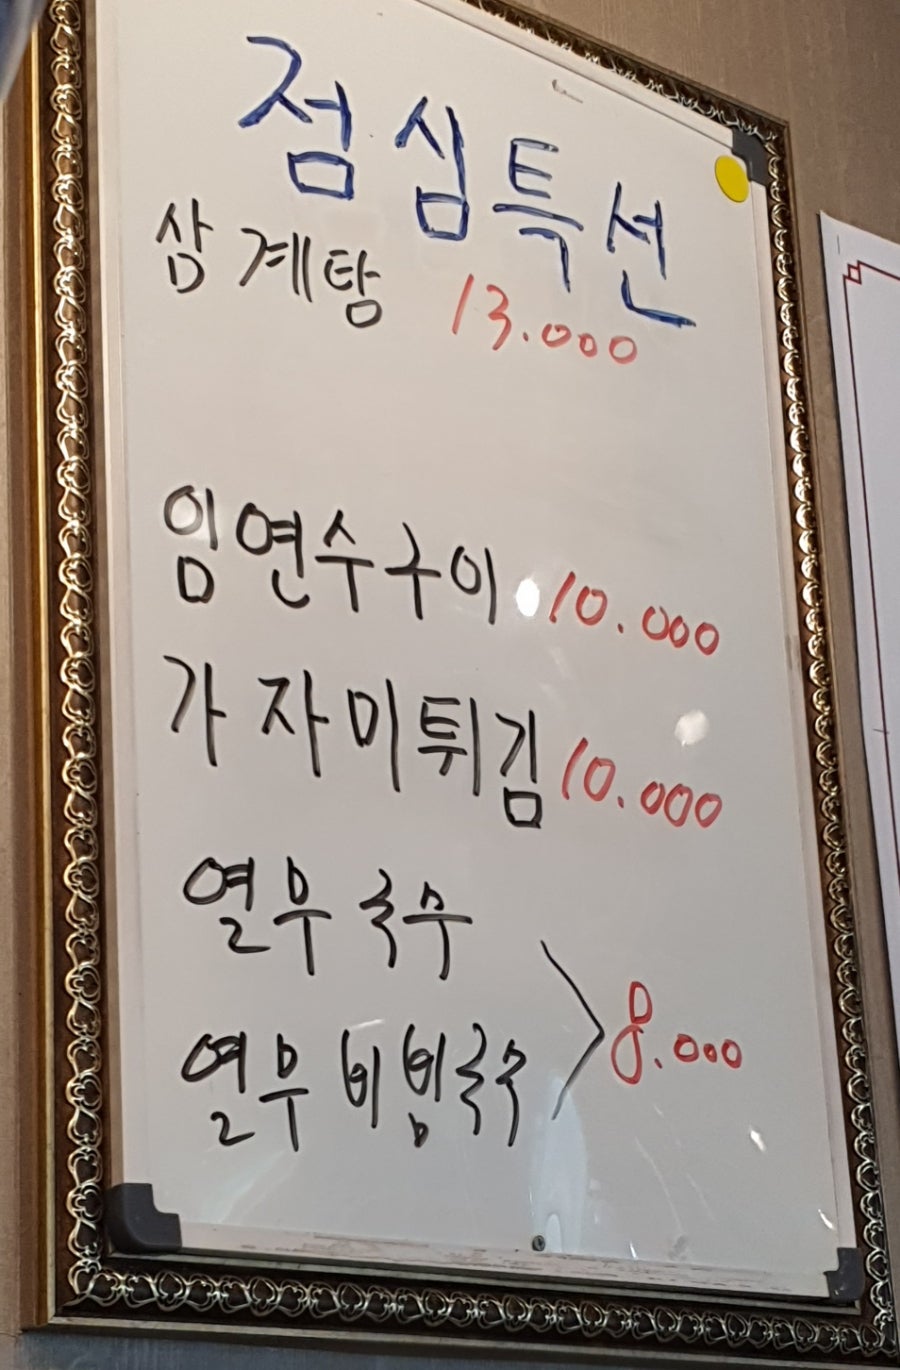 점심특선
삼계탕 13.000
임연수구이 10.000
가자미튀김 10.000
열무국수
열무비빔국수 > 8.000